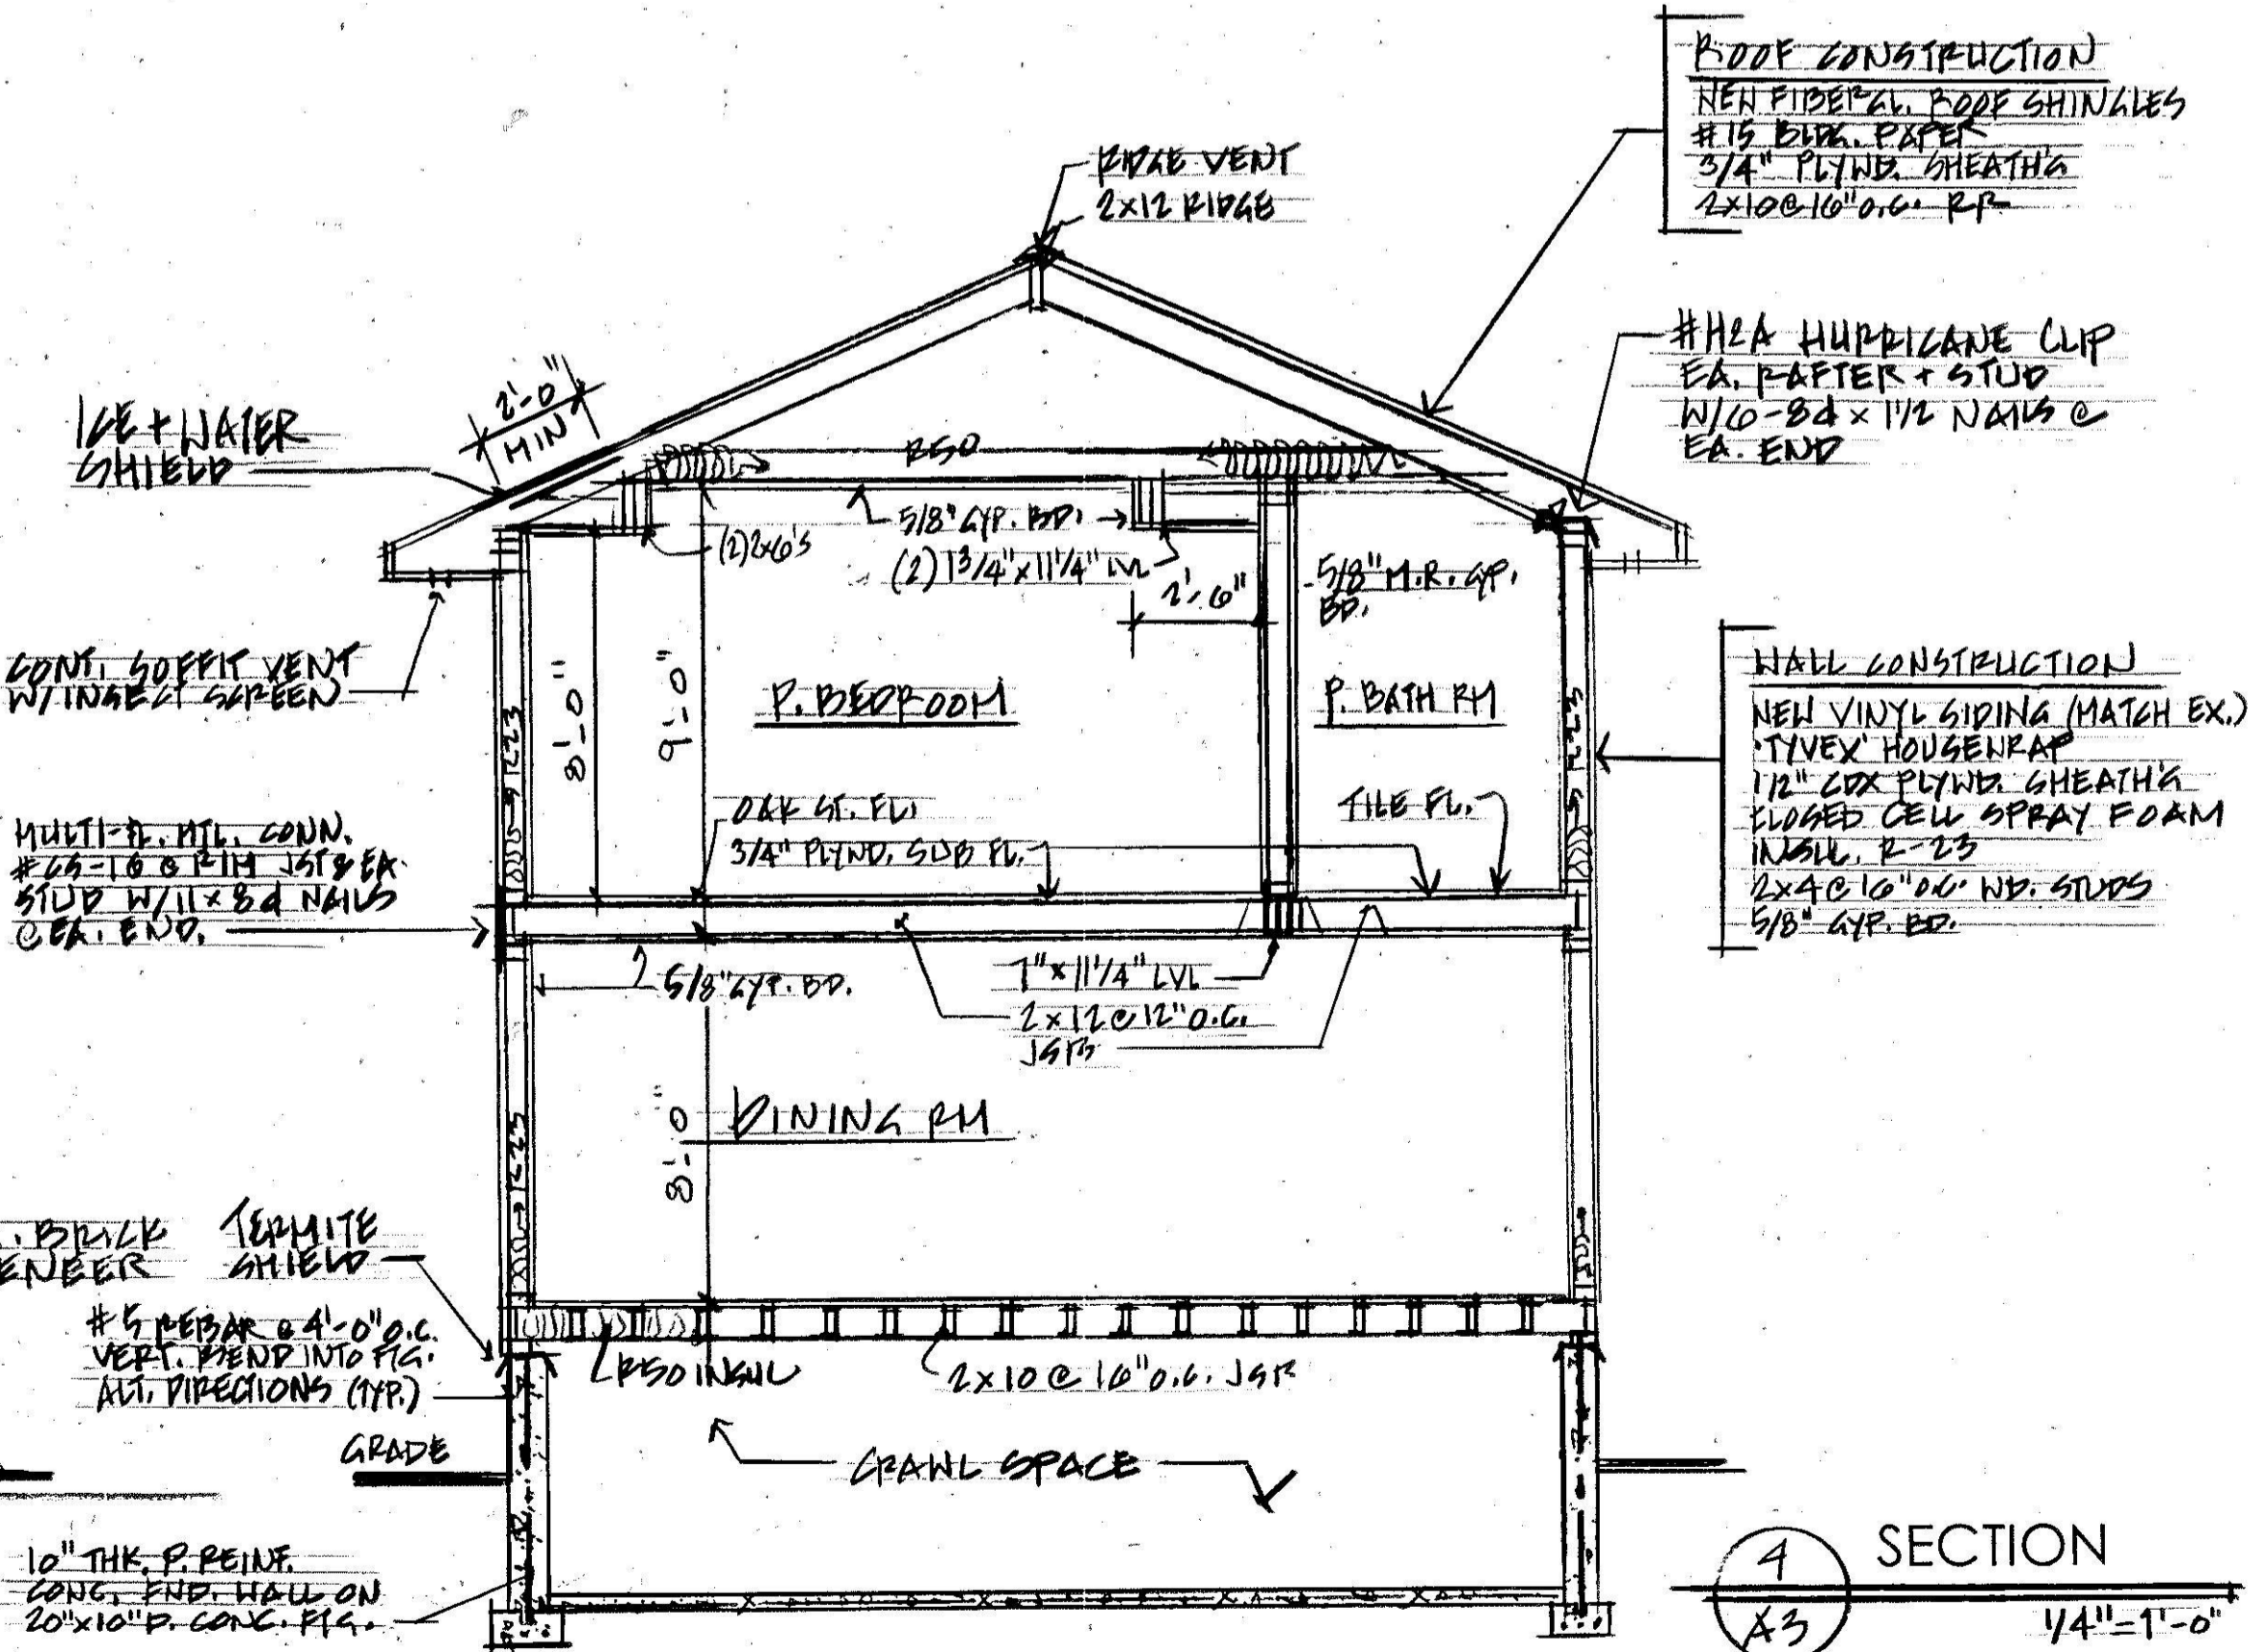 ROOF CONSTRUCTION
NEW FIBERGL. ROOF SHINGLES
#15 BLDG. PAPER
3/4" PLYWD. SHEATH'G
2x10@16"O.C. RR
RIDGE VENT
2x12 RIDGE
#H2A HURRICANE CLIP
EA. RAFTER + STUD
W/6-8d x 1 1/2 NAILS @
EA. END
2'-0"
MIN
ICE + WATER
SHIELD
R50
5/8" GYP. BD.
(2) 2x6'S
(2) 1 3/4" x 11 1/4" LVL
2'-6"
5/8" M.R. GYP.
BD.
CONT. SOFFIT VENT
W/INSECT SCREEN
8'-0"
9'-0"
P. BEDROOM
P. BATH RM
R23
R23
WALL CONSTRUCTION
NEW VINYL SIDING (MATCH EX.)
'TYVEX' HOUSEWRAP
1/2" CDX PLYWD. SHEATH'G
CLOSED CELL SPRAY FOAM
INSUL. R-23
2x4@16"O.C. WD. STUDS
5/8" GYP. BD.
OAK ST. FL.
3/4" PLYWD. SUB FL.
TILE FL.
MULTI-FL. MTL. CONN.
#CS-16 @ RIM JST & EA.
STUD W/11x8d NAILS
@ EA. END.
5/8" GYP. BD.
7" x 11 1/4" LVL
2x12@12"O.C.
JSTS
8'-0"
DINING RM
R23
BRICK
TERMITE
SHIELD
#5 REBAR @ 4'-0" O.C.
VERT. BEND INTO FTG.
ALT. DIRECTIONS (TYP.)
R50 INSUL
2x10@16"O.C. JST
GRADE
CRAWL SPACE
10" THK. P. REINF.
CONC. FND. WALL ON
20"x10" P. CONC. FTG.
4
A3
SECTION
1/4"=1'-0"